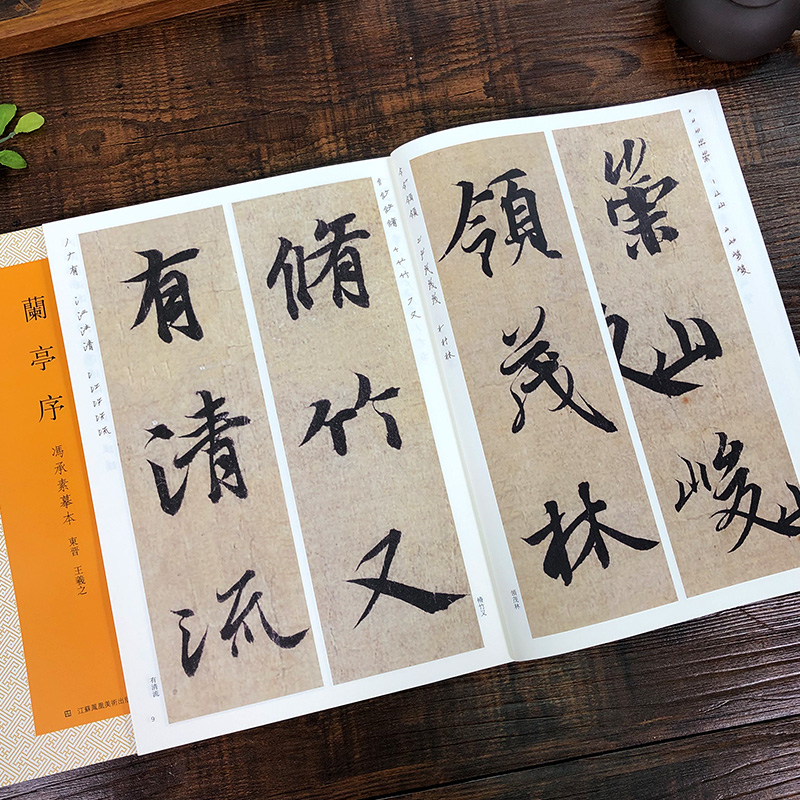 崇山峻
領茂林
脩竹又
有清流
領茂林
脩竹又
有清流
9
蘭亭序
馮承素摹本
東晋 王羲之
江蘇鳳凰美術出